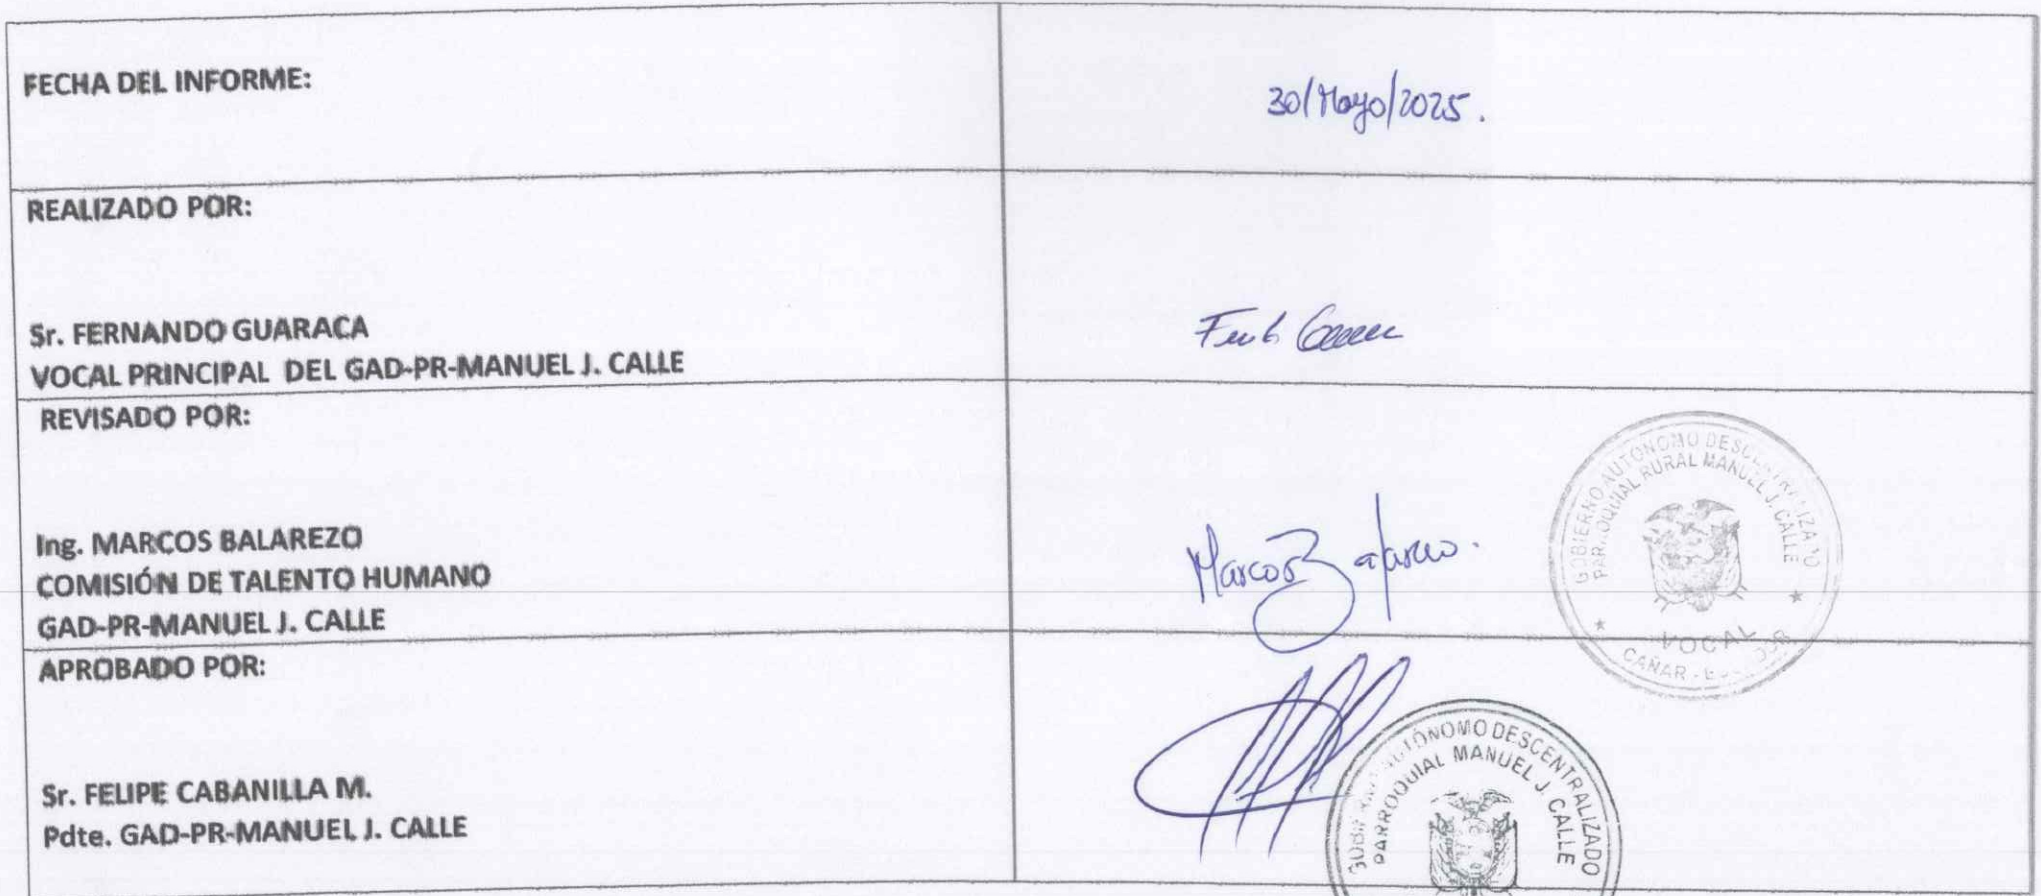 FECHA DEL INFORME:
30/Mayo/2025.
REALIZADO POR:
Sr. FERNANDO GUARACA
VOCAL PRINCIPAL DEL GAD-PR-MANUEL J. CALLE
REVISADO POR:
Ing. MARCOS BALAREZO
COMISIÓN DE TALENTO HUMANO
GAD-PR-MANUEL J. CALLE
Marcos Balarezo.
GOBIERNO AUTÓNOMO DESCENTRALIZADO
PARROQUIAL RURAL MANUEL J. CALLE
VOCAL
CAÑAR - ECUADOR
APROBADO POR:
Sr. FELIPE CABANILLA M.
Pdte. GAD-PR-MANUEL J. CALLE
GOBIERNO AUTÓNOMO DESCENTRALIZADO
PARROQUIAL MANUEL J. CALLE